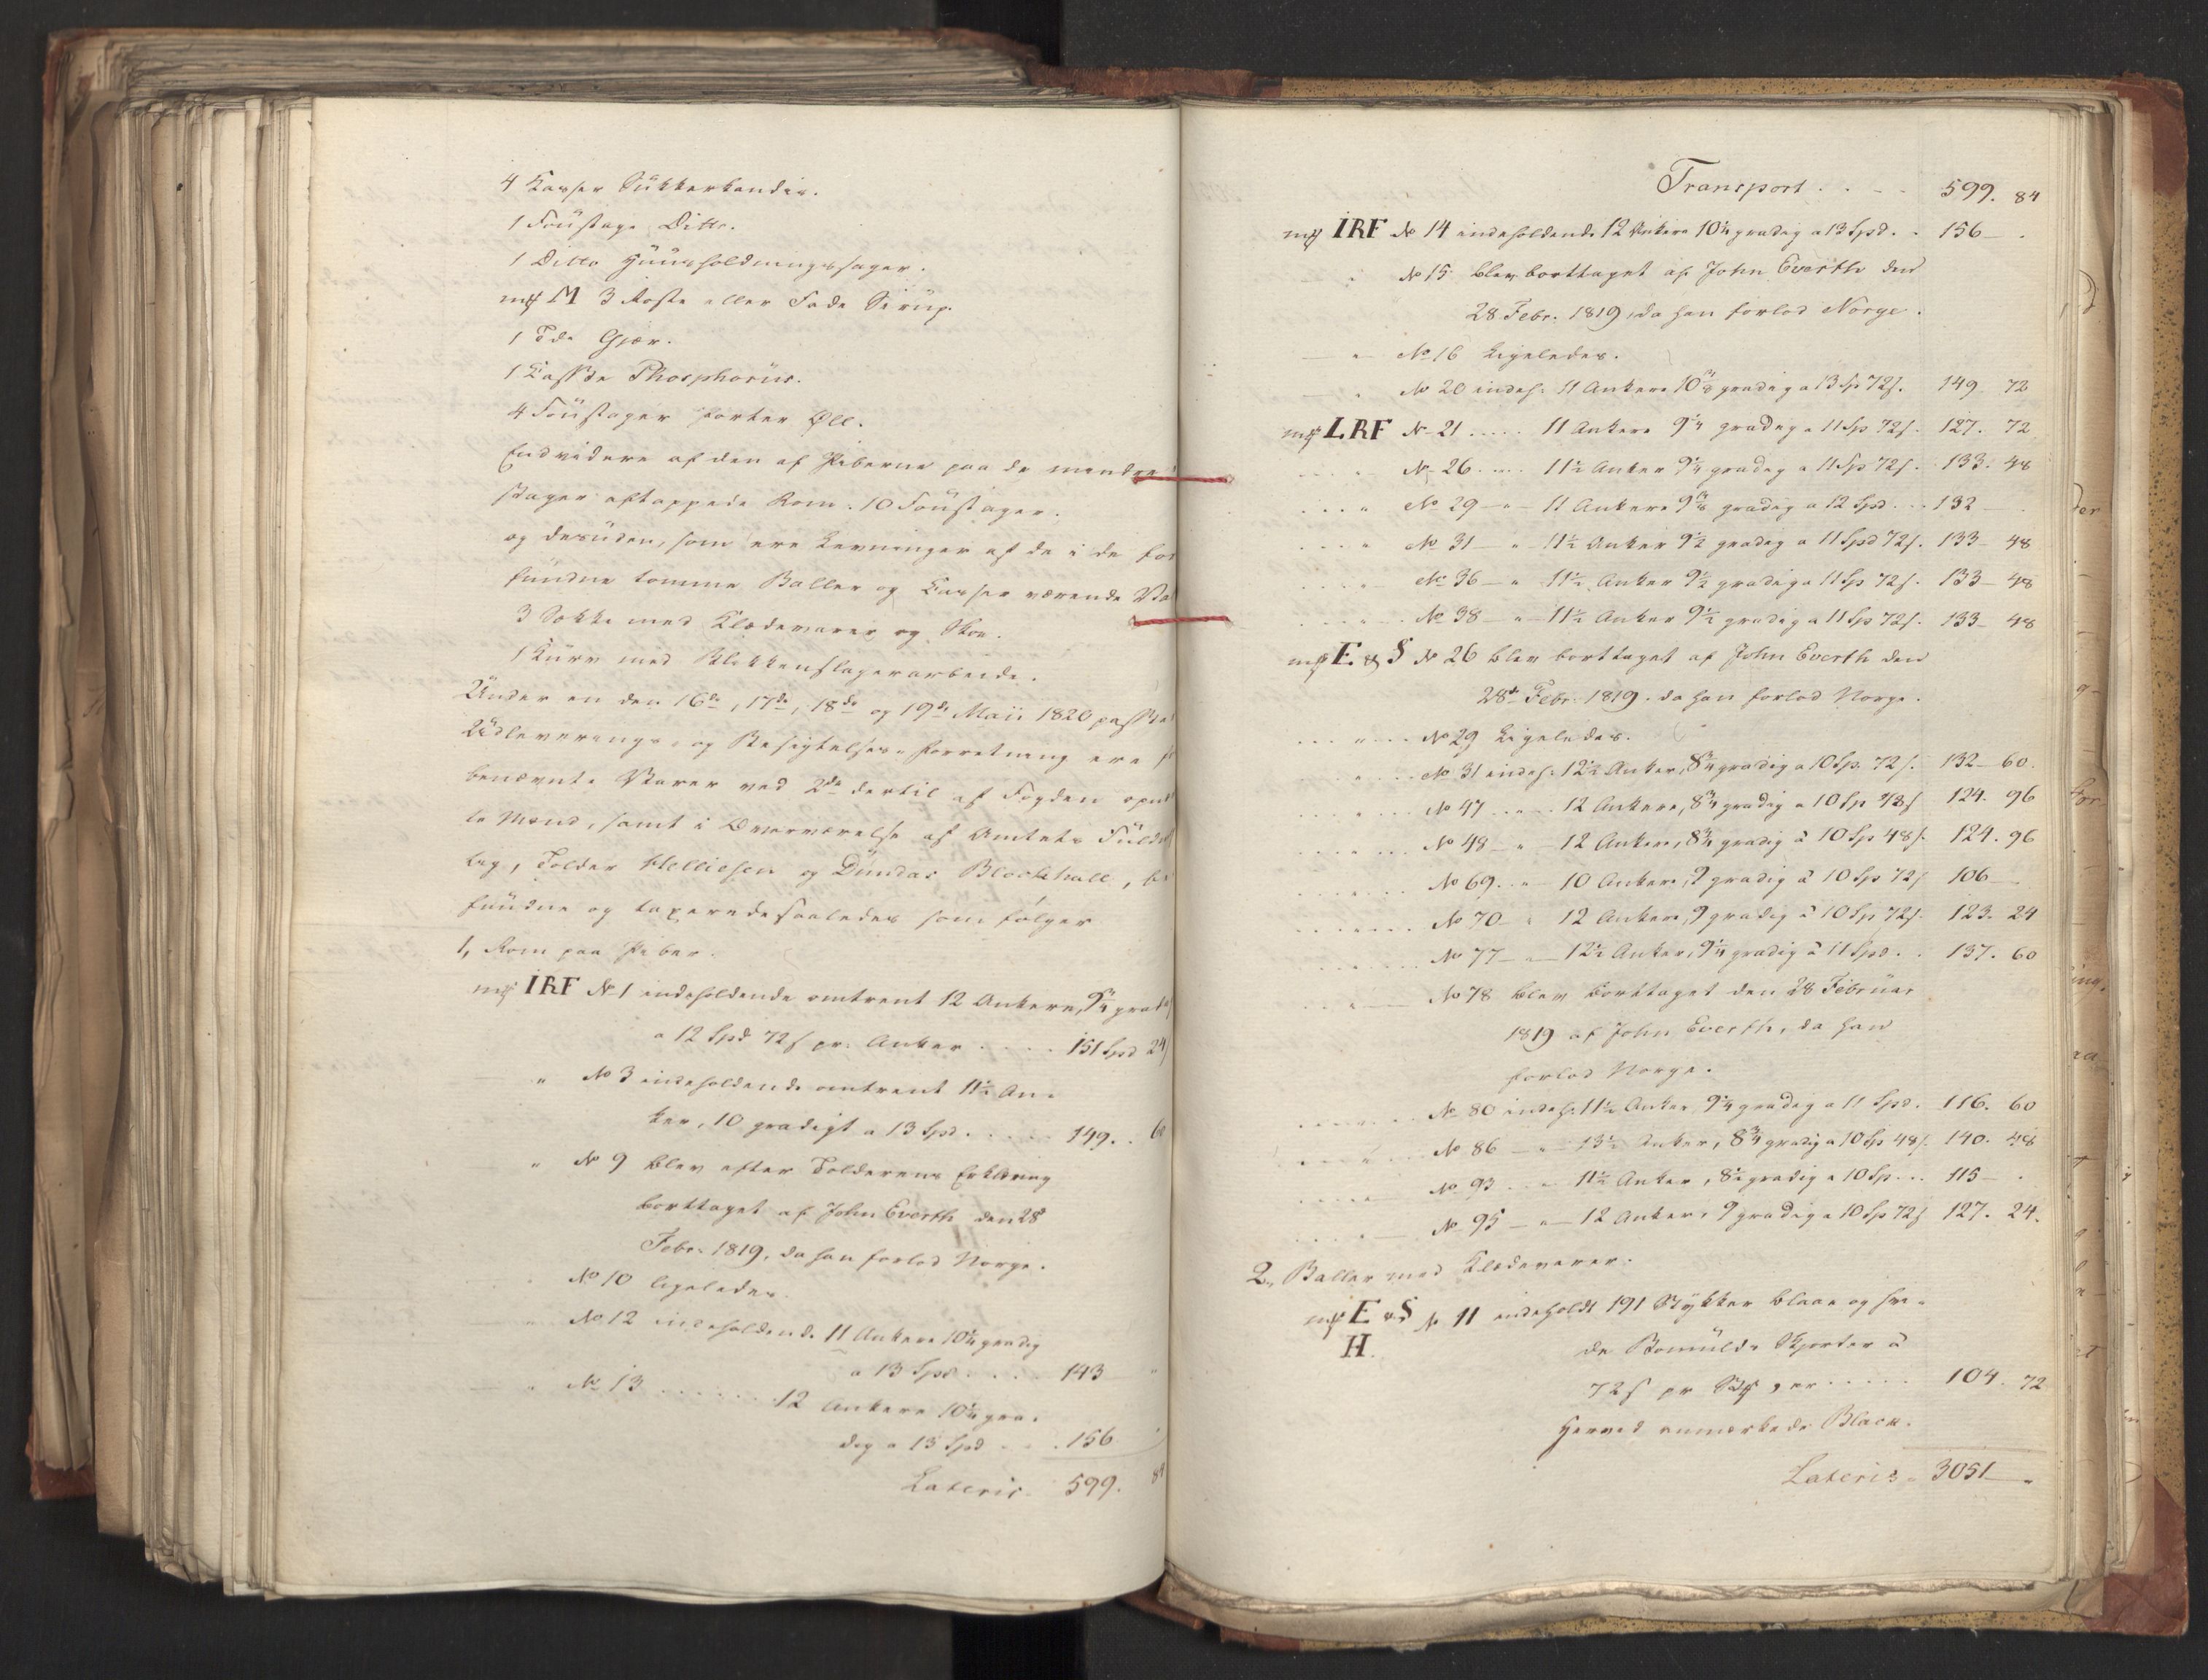 4 Kasser Sükkerkandis.
1 Foüstage Ditto.
1 Ditto Hüüsholdningssager.
mrk M 3 Foste eller Fade Sirüp.
1 Tde Gjær.
1 Kasse Phosphorus.
4 Foüstager porter Øll.
Endvidere af den af Piberne paa de mindre
stager aftappede Rom. 10 Foüstager.
og desüden, som ere Levninger af de i de for
fündne tomme Baller og Kasser værende Va
3 Sække med Klædevarer og Skoe.
1 Kürv med Blikkenslagerarbeide.
Ünder en den 16de, 17de, 18de og 19de Maii 1820 passe
Üdleverings- og Besigtelses-Forretning ere
benævnte Varer ved 2de dertil af Fogden opnæ
te Mænd, samt i Overværelse af Amtets Füld
tig, Tolder Helliesen og Dündas Blackhall, be
fündne og taxerede saaledes som følger
1, Rom paa Piber.
mrk IRF No 1 indeholdende omtrent 12 Ankere, 9¾ grad
a 12 Spd 72 s pr. Anker .... 151 Spd 24
" No 3 indeholdende omtrent 11½ An-
ker, 10 gradigt a 13 Spd. .... 149. 60
" No 9 blev efter Tolderens Erklæring
borttaget af John Everth den 28
Febr. 1819, da han forlod Norge.
" No 10 ligeledes.
" No 12 indeholdende 11 Ankere 10¼ gradig
a 13 Spd .... 143 "
" No 13 ...... 12 Ankere 10¼ gra-
dig a 13 Spd ... 156 "
Lateris 599. 84
Transport .... 599. 84
mrk IRF No 14 indeholdende 12 Ankere 10¼ gradig a 13 Spd. . 156 — .
No 15 blev borttaget af John Everth den
28 Febr. 1819, da han forlod Norge.
— " — No 16 Ligeledes.
— " No 20 indeh: 11 Ankere 10¾ gradig a 13 Sp 72 s. 149. 72
mrk LRF No 21 ..... 11 Ankere 9¼ gradig a 11 Sp 72 s. 127. 72
.... " No 26 .... 11½ Anker 9¼ gradig a 11 Sp 72 s. 133. 48
.... " No 29 — " — 11 Ankere 9¾ gradig a 12 Spd ... 132 — .
.... " No 31 — " — 11½ Anker 9½ gradig a 11 Spd 72 s. 133 — 48
.... " No 36 — " — 11½ Anker 9½ gradig a 11 Sp 72 s. 133 — 48
.... " No 38 — " — 11½ Anker 9½ gradig a 11 Sp 72 s. 133 — 48
mrk E & S No 26 blev borttaget af John Everth den
28de Febr. 1819. da han forlod Norge.
... " ... No 29 Ligeledes.
... " ... No 31 indeh: 12½ Anker, 8¾ gradig a 10 Sp. 72 s. 132 — 60.
... " ... No 47 ... " ... 12 Ankere, 8¾ gradig a 10 Sp 48 s 124. 96
... " ... No 48 — " — 12 Ankere, 8¾ gradig à 10 Sp 48 s. 124. 96
... " ... No 69. " — 10 Ankere, 9 gradig à 10 Sp 72 s 106 —
... " ... No 70 — " 12 Ankere, 9 gradig à 10 Sp 72 s. 123. 24
... " ... No 77 — " — 12½ Anker, 9¼ gradig à 11 Spd. . 137. 60
... " — No 78 blev borttaget den 28 Februar
1819 af John Everth, da han
forlod Norge.
... " ... No 80 indeh: 11½ Anker, 9¼ gradig a 11 Spd. 116. 60
... " ... No 86 — " — 13½ Anker, 8¾ gradig a 10 Sp 48 s. 140. 48
... " — No 93 ... " 11½ Anker, 8½ gradig a 10 Sp ... 115 — .
... " — No 95 — " — 12 Ankere 9 gradig a 10 Sp 72 s 127. 24.
2, Baller med Klædevarer.
mrk E & S No 11 indeholdt 191 Stykker blaae og hvi-
H. de Bomülds Skjorter à
72 s pr Stk, er ..... 104. 72
Herved anmærkede Black.
Lateris. 3051 — "